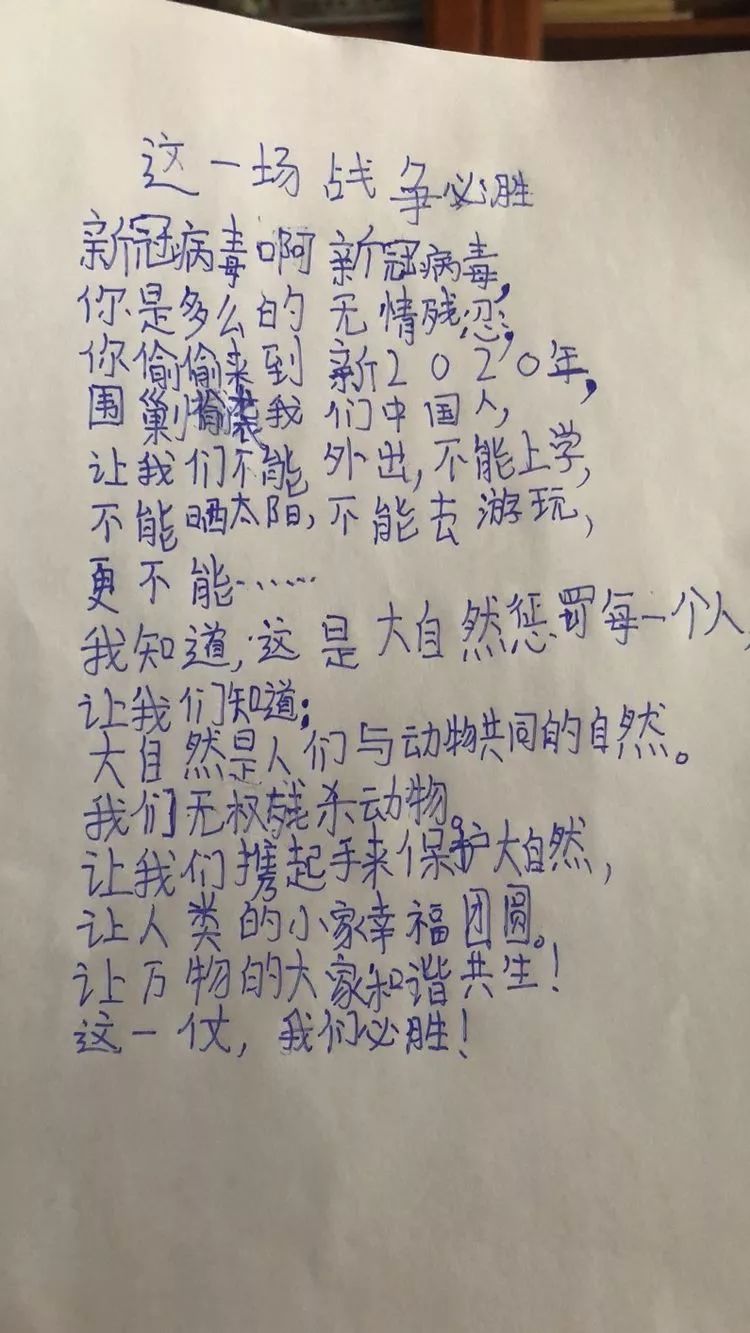 这一场战争必胜
新冠病毒啊新冠病毒,
你是多么的无情残忍,
你偷偷来到新2020年,
围剿偷袭我们中国人,
让我们不能外出,不能上学,
不能晒太阳,不能去游玩,
更不能……
我知道,这是大自然惩罚每一个人,
让我们知道;
大自然是人们与动物共同的自然。
我们无权残杀动物。
让我们携起手来保护大自然,
让人类的小家幸福团圆。
让万物的大家和谐共生!
这一仗,我们必胜!